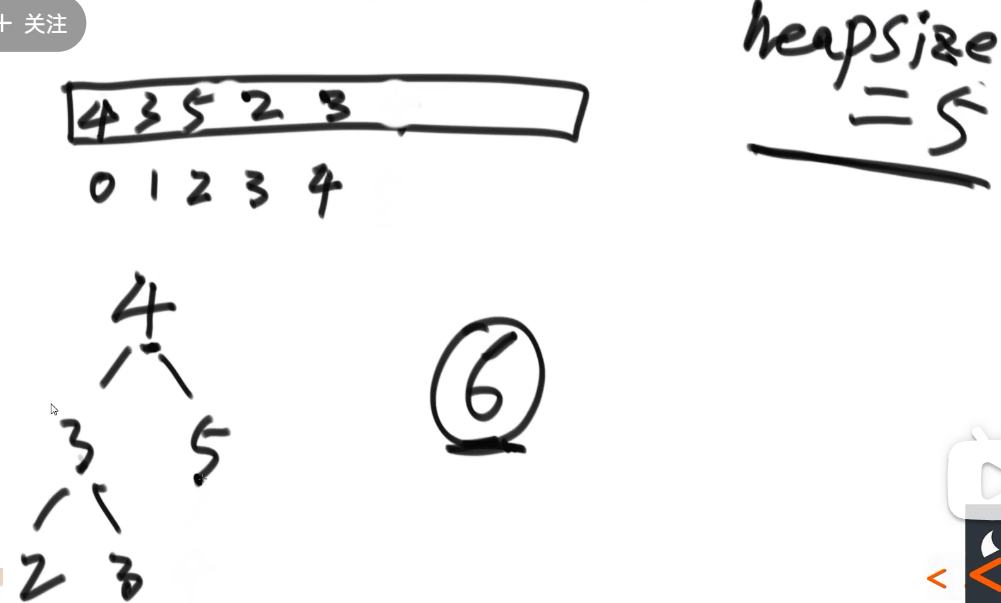 + 关注
heapsize
= 5
4 3 5 2 3
0 1 2 3 4
4
3 5
6
2 3